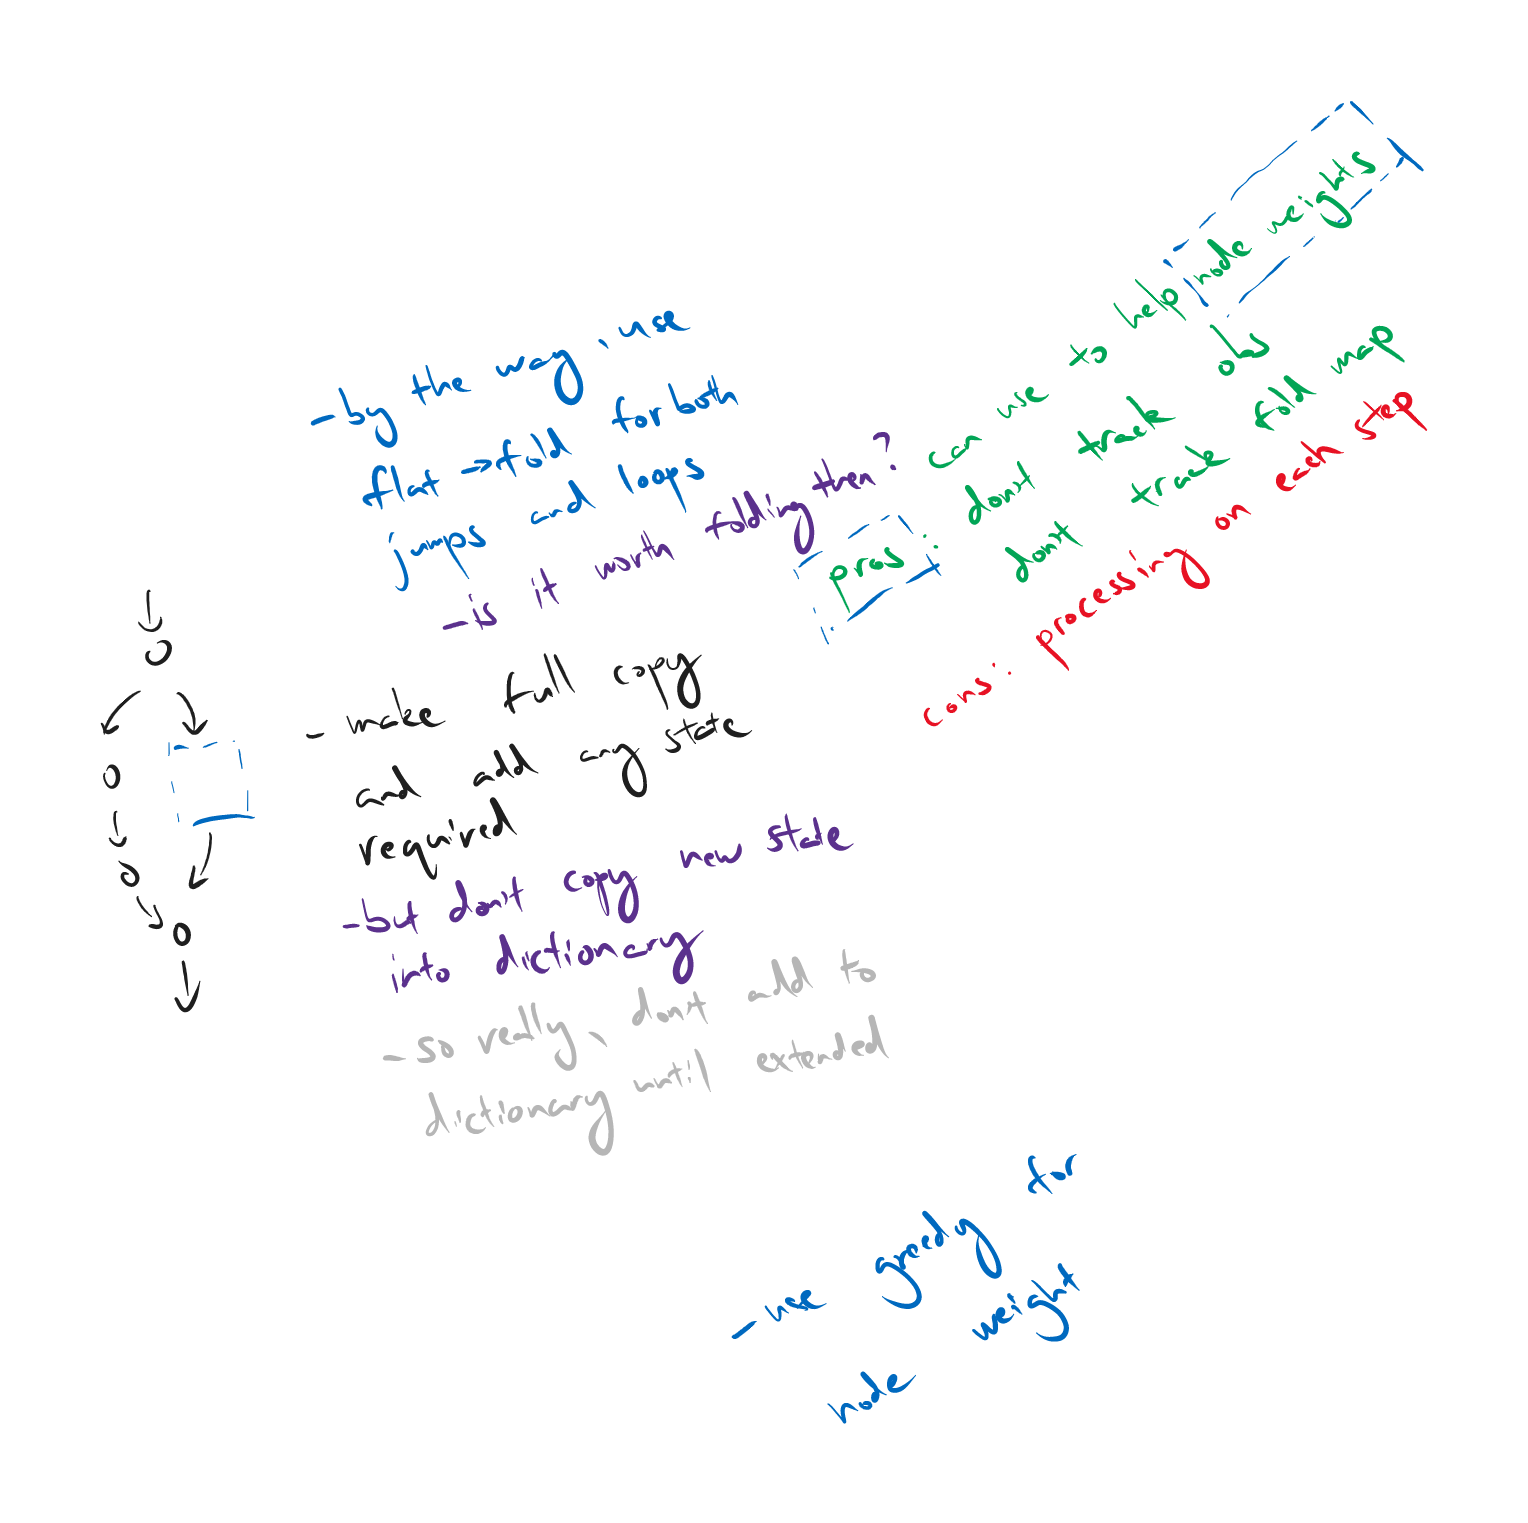 - by the way, use
flat → fold for both
jumps and loops
- is it worth folding then?
pros: can use to help node weights
don't track obs
don't track fold map
cons: processing on each step
- make full copy
and add any state
required
- but don't copy new state
into dictionary
- so really, don't add to
dictionary until extended
- use greedy for
node weight